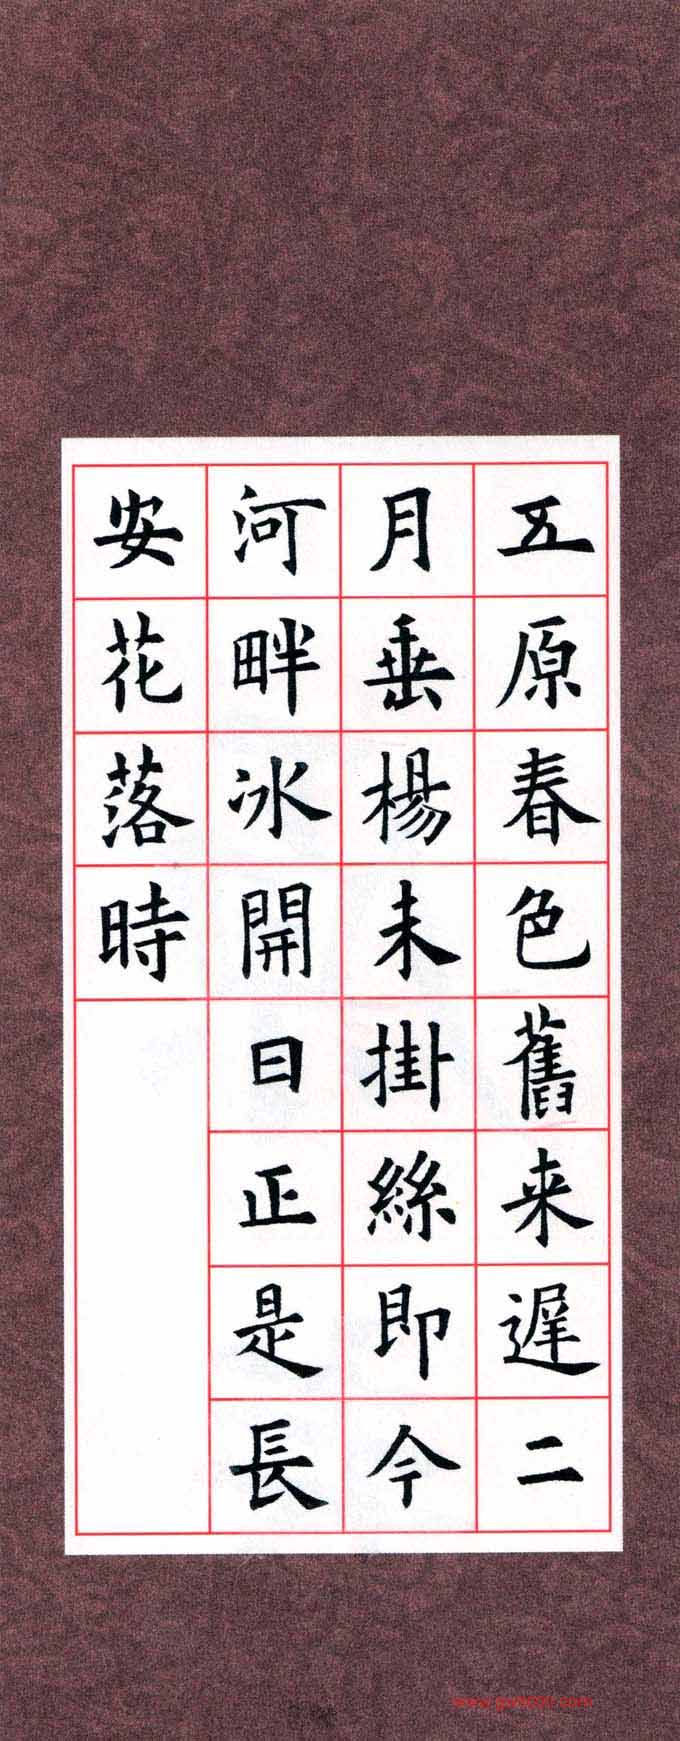 五原春色舊来遲二
月垂楊未掛絲即今
河畔冰開日正是長
安花落時